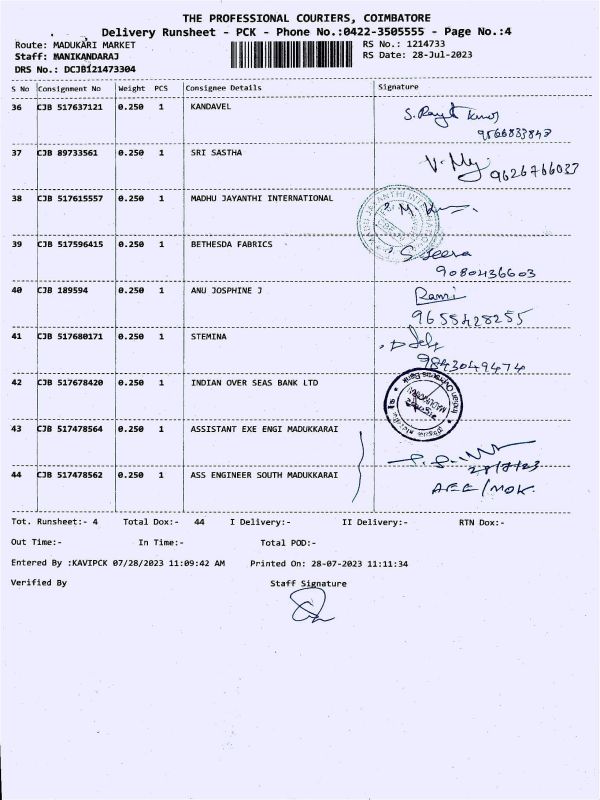 THE PROFESSIONAL COURIERS, COIMBATORE
Delivery Runsheet - PCK - Phone No.:0422-3505555 - Page No.:4
Route: MADUKARI MARKET RS No.: 1214733
Staff: MANIKANDARAJ RS Date: 28-Jul-2023
DRS No.: DCJB121473304
S No Consignment No Weight PCS Consignee Details Signature
36 CJB 517637121 0.250 1 KANDAVEL
9566833847
37 CJB 89733561 0.250 1 SRI SASTHA
9626766033
38 CJB 517615557 0.250 1 MADHU JAYANTHI INTERNATIONAL
39 CJB 517596415 0.250 1 BETHESDA FABRICS
9080436603
40 CJB 189594 0.250 1 ANU JOSPHINE J
9655428255
41 CJB 517680171 0.250 1 STEMINA
9843049474
42 CJB 517678420 0.250 1 INDIAN OVER SEAS BANK LTD
43 CJB 517478564 0.250 1 ASSISTANT EXE ENGI MADUKKARAI
28/7/23
44 CJB 517478562 0.250 1 ASS ENGINEER SOUTH MADUKKARAI
AEE/MDK.
Tot. Runsheet:- 4 Total Dox:- 44 I Delivery:- II Delivery:- RTN Dox:-
Out Time:- In Time:- Total POD:-
Entered By :KAVIPCK 07/28/2023 11:09:42 AM Printed On: 28-07-2023 11:11:34
Verified By Staff Signature